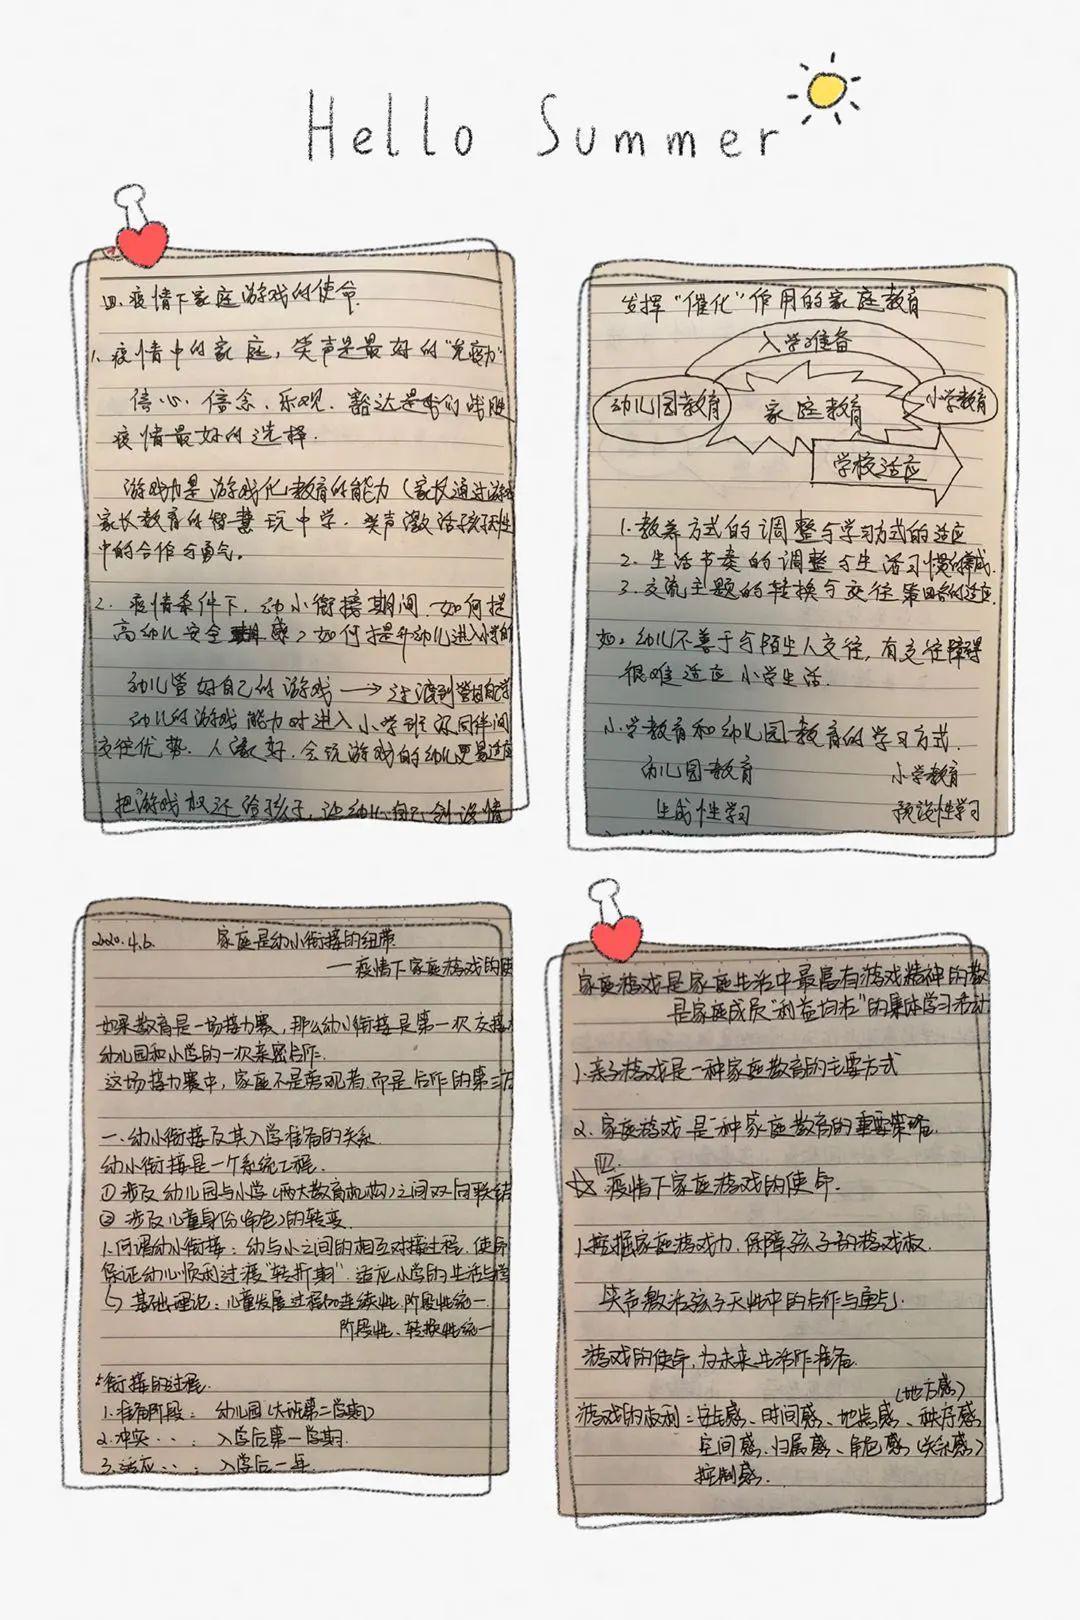 Hello Summer
四、疫情下家庭游戏的使命
1. 疫情中的家庭，笑声是最好的“免疫力”
信心、信念、乐观、豁达是我们战胜
疫情最好的选择.
游戏力是游戏化教育的能力（家长通过游戏
家长教育的智慧玩中学. 笑声激活孩子天性
中的合作与勇气。
2. 疫情条件下，幼小衔接期间 如何提
高幼儿安全感，如何提升幼儿进入小学的
幼儿管好自己的游戏 → 过渡到管好自己学
幼儿的游戏能力对进入小学到 同伴间
交往优势. 人缘好. 会玩游戏的幼儿更易适应
把游戏权还给孩子，让幼儿自己创设情
发挥“催化”作用的家庭教育
入学准备
幼儿园教育 家庭教育 小学教育
学校适应
1. 教养方式的调整与学习方式的适应
2. 生活节奏的调整与生活习惯的养成.
3. 交流主题的转换与交往策略的适应.
如：幼儿不善于与陌生人交往，有交往障碍
很难适应小学生活.
小学教育和幼儿园教育的学习方式.
幼儿园教育 小学教育
生成性学习 预设性学习
2020.4.6. 家庭是幼小衔接的纽带
——疫情下家庭游戏的使
如果教育是一场接力赛，那么幼小衔接是第一次交接
幼儿园和小学的一次亲密合作.
这场接力赛中，家庭不是旁观者 而是合作的第三方
一. 幼小衔接及其入学准备的关系.
幼小衔接是一个系统工程.
① 涉及幼儿园与小学（两大教育机构）之间双向联结
② 涉及儿童身份（角色）的转变.
1. 何谓幼小衔接：幼与小之间的相互对接过程. 使命
保证幼儿顺利过渡“转折期”. 适应小学的生活与学
↳ 基础理论：儿童发展过程的连续性. 阶段性统一.
阶段性、转换性统一
衔接的过程.
1. 准备阶段：幼儿园（大班第二学期）
2. 冲突 · · ：入学后第一学期.
3. 适应 · · ：入学后一年.
家庭游戏是家庭生活中最富有游戏精神的教
是家庭成员“利益均沾”的集体学习活动
1. 亲子游戏是一种家庭教育的主要方式
2. 家庭游戏是一种家庭教育的重要策略.
四.
☆ 疫情下家庭游戏的使命.
1. 挖掘家庭游戏力. 保障孩子的游戏权.
笑声激活孩子天性中的合作与勇气.
游戏的使命，为未来生活所准备.
（地方感）
游戏的权利：安全感、时间感、地点感、秩序感
空间感、归属感、角色感（关系感）
控制感.